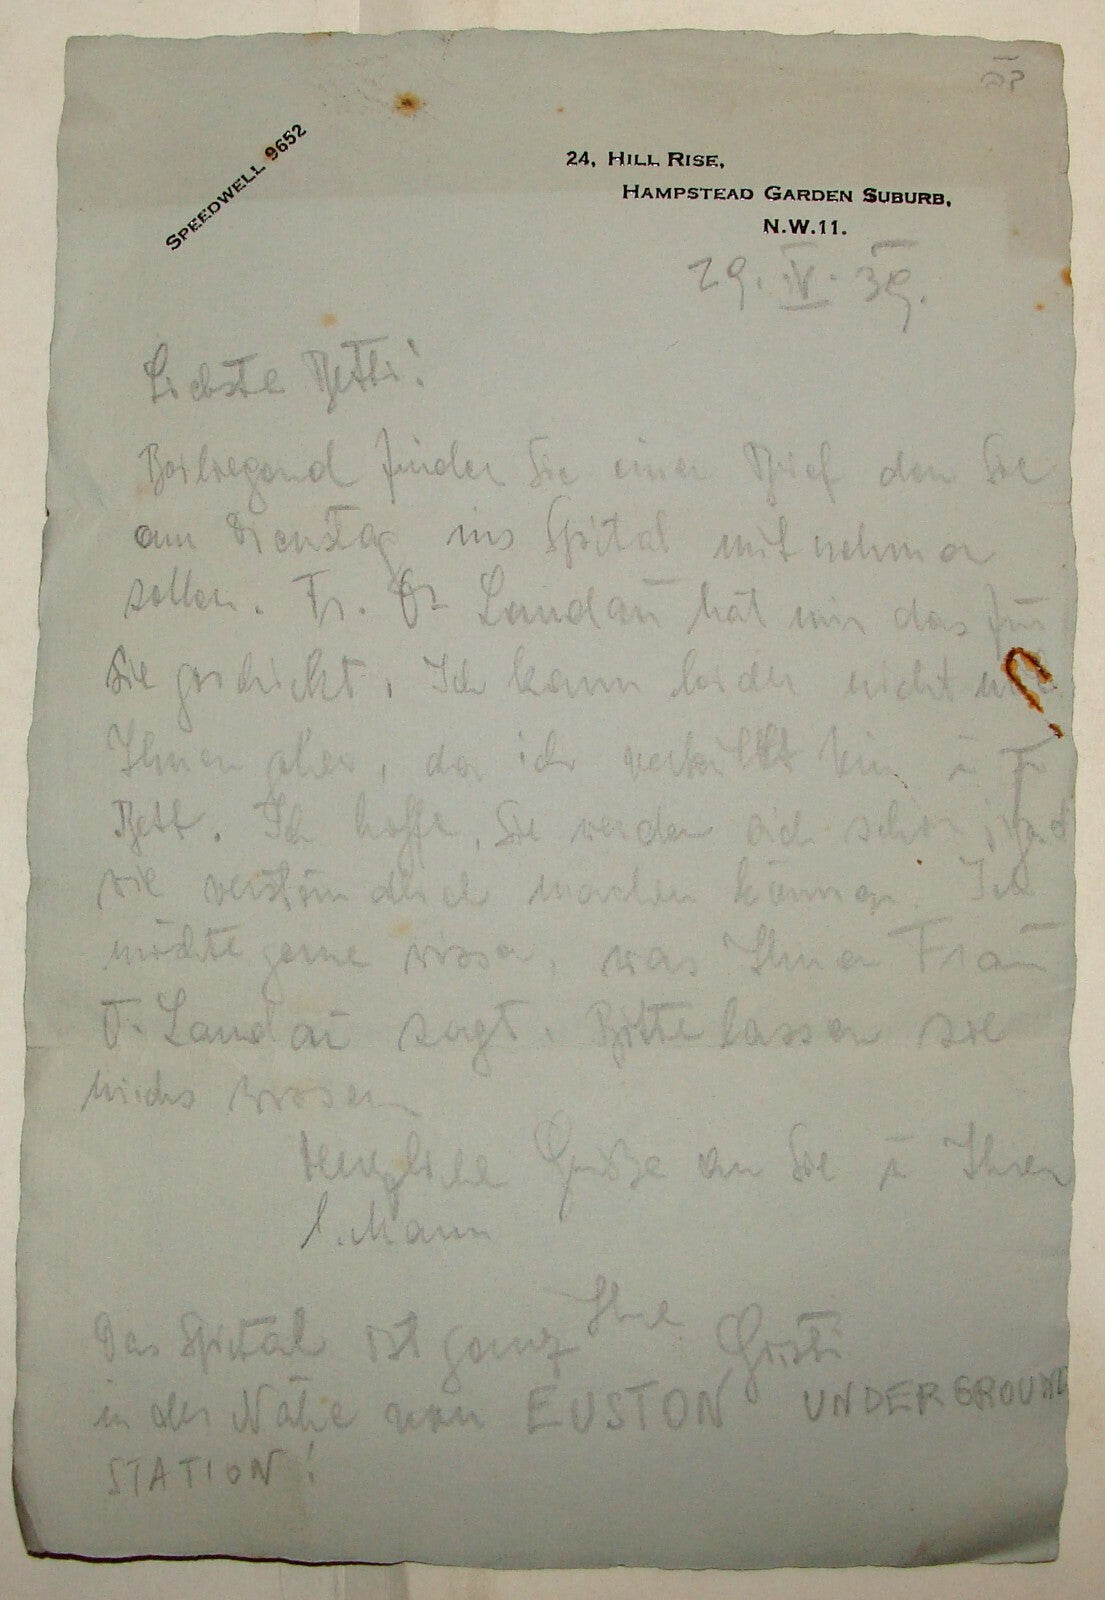 SPEEDWELL 9652
24, HILL RISE,
HAMPSTEAD GARDEN SUBURB,
N.W.11.
29. IV. 39.
Liebste Betti!
Beiliegend finden Sie einen Brief den Sie
am Dienstag ins Spital mitnehmen
sollen. Fr. Dr Landau hat mir das für
Sie geschickt. Ich kann leider nicht mit
Ihnen gehen, da ich verkühlt bin u im
Bett. Ich hoffe, Sie werden sich schon irgend
wie verständlich machen können. Ich
möchte gerne wissen, was Ihnen Frau
D. Landau sagt. Bitte lassen sie
michs wissen
Herzliche Grüße an Sie u Ihren
l. Mann
Ihre
Gusti
Das Spital ist ganz
in der Nähe von EUSTON UNDERGROUND
STATION!